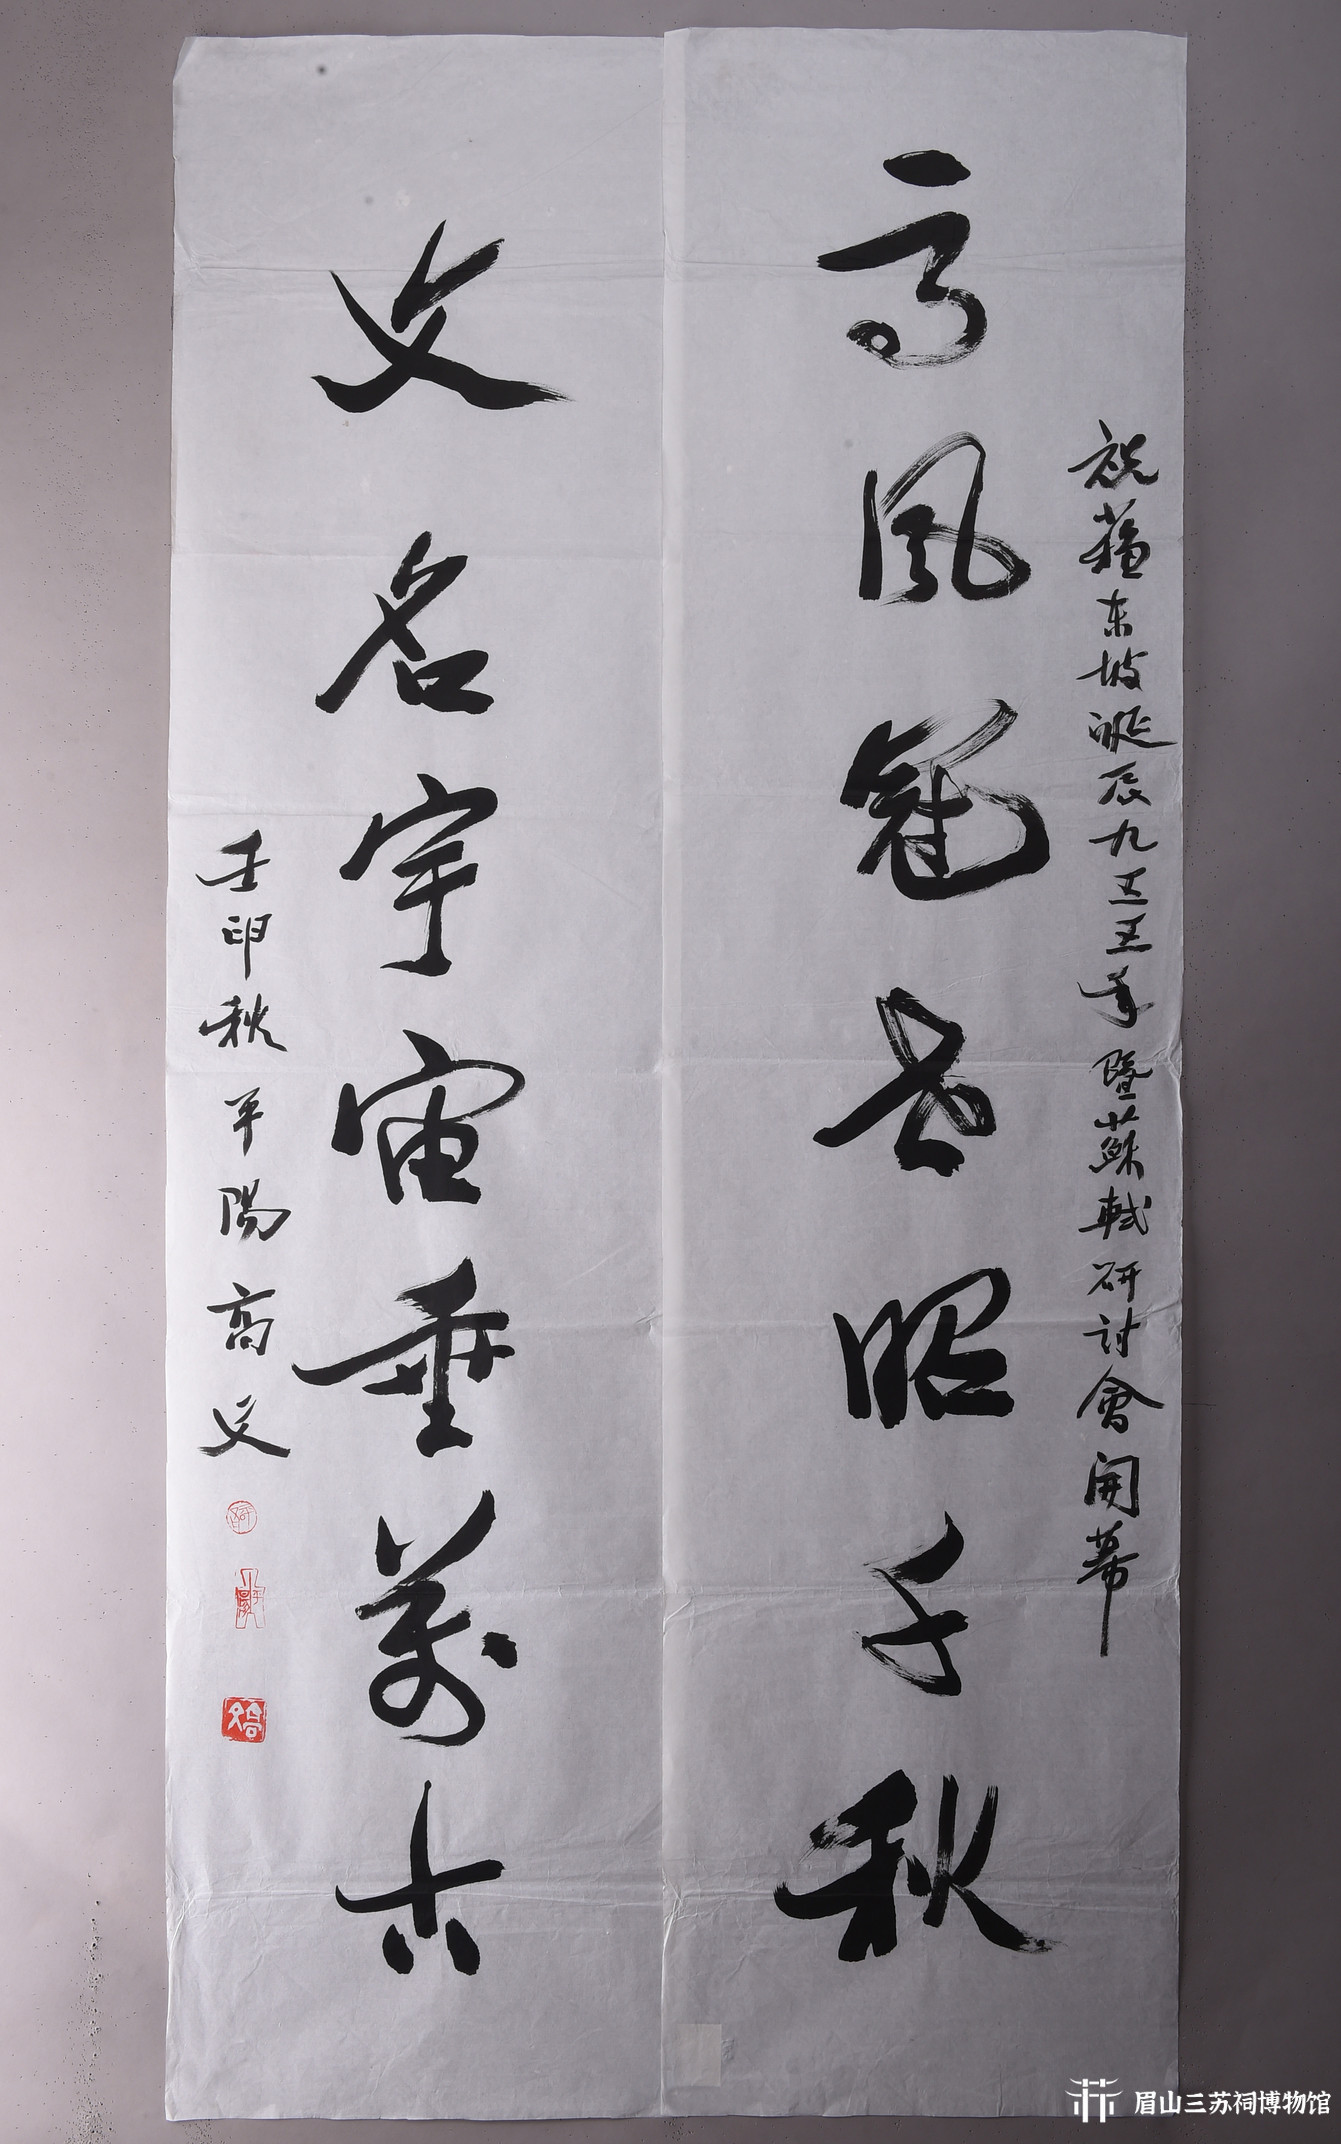 祝蘇东坡诞辰九五五年暨蘇軾研討會開幕
高风冠昭千秋
文名宇宙垂萬古
壬申秋平陽高文
眉山三苏祠博物馆